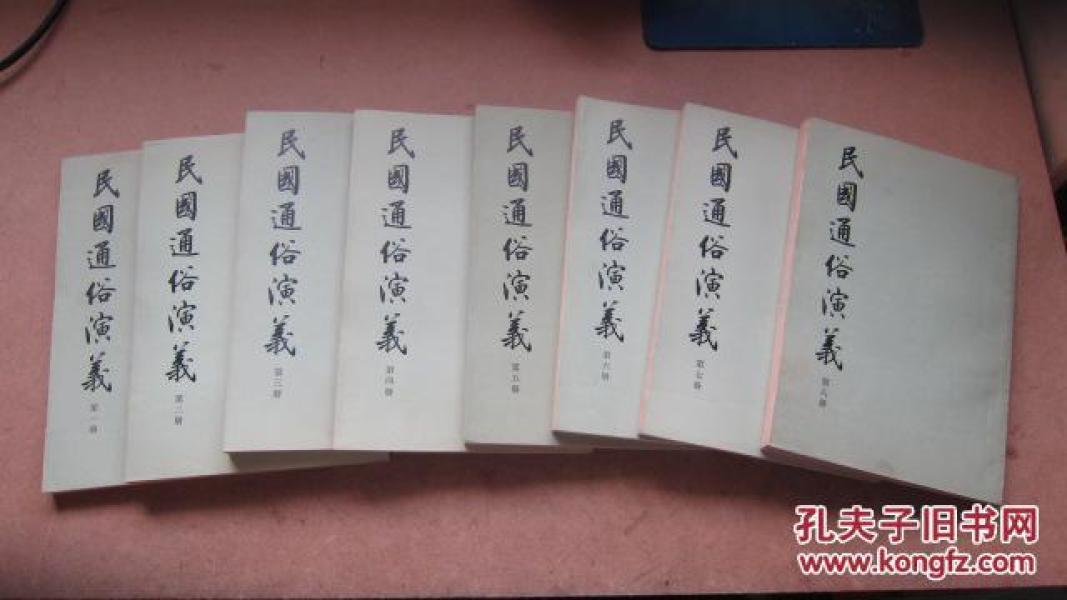 民國通俗演義
第一册
民國通俗演義
第二册
民國通俗演義
第三册
民國通俗演義
第四册
民國通俗演義
第五册
民國通俗演義
第六册
民國通俗演義
第七册
民國通俗演義
第八册
孔夫子旧书网
www.kongfz.com